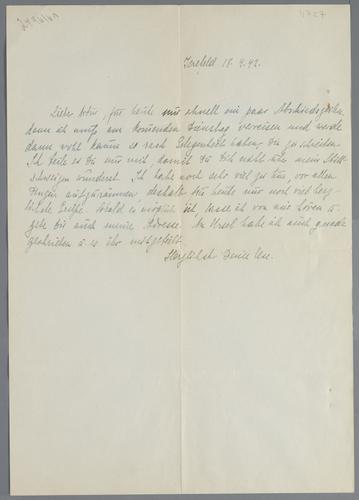 Krefeld 18.4.42.
Liebe , für heute nur schnell ein paar Abschiedszeilen,
denn ich muß am kommenden Dienstag verreisen und werde
dann wohl kaum so rasch Gelegenheit haben, Dir zu schreiben.
Ich teile es Dir nur mit, damit Du Dich nicht über mein Still-
schweigen wunderst. Ich habe noch sehr viel zu tun, vor allen
Dingen aufzuräumen, deshalb für heute nur noch viel herz-
liche Grüße. Sobald es möglich ist, wirst Du von mir hören u.
gebe Dir auch meine Adresse. An habe ich auch gerade
geschrieben u. es ihr mitgeteilt.
Herzlichst Deine